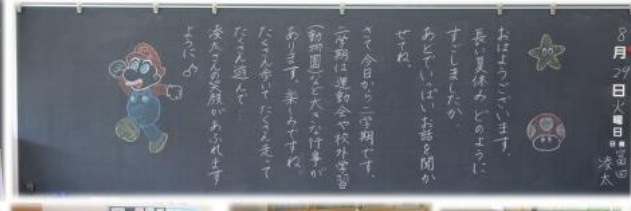 8月29日火曜日
日直
富田
凌太
おはようございます。
長い夏休み どのように
すごしましたか。
あとでいっぱいお話を聞か
せてね。
さて、今日から二学期です。
二学期は運動会や校外学習
(動物園)など大きな行事が
あります。楽しみですね。
たくさん歩いて たくさん走って
たくさん遊んで…
凌太さんの笑顔があふれます
ように♪